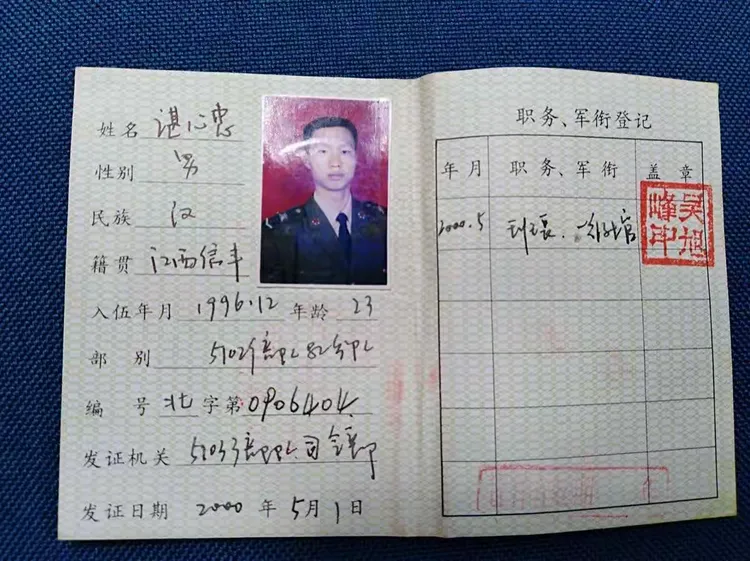 姓名 谌心忠
性别 男
民族 汉
籍贯 江西信丰
入伍年月 1996.12 年龄 23
部别 51029部队82分队
编号 北字第0906404
发证机关 部队司令部
发证日期 2000年5月1日
职务、军衔登记
年月 职务、军衔 盖章
2000.5 班长
吴旭峰印